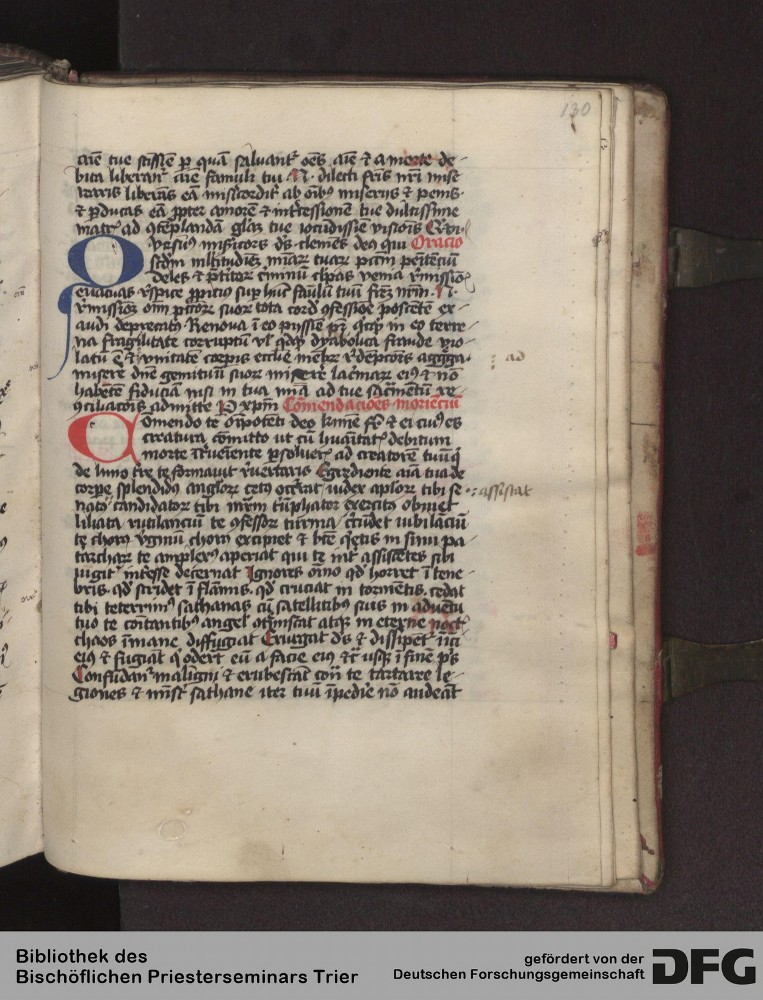 130
aīe tue sctīssīe p quā saluant᷑ oēs aīe ⁊ a morte de-
bita liberant᷑ aīe famuli tui N dilecti fr̄is nr̄i mise
liberās eā misericordit᷑ ab oībꝰ miserijs ⁊ penis·
⁊ p̄ducas eā ꝓpter amorē ⁊ intercessionē tue dulcissime
matr̄ ad ꝯtēplandā gl̄az tue iocūdissīe visiōis
misericors dꝰ clemēs deꝰ qui Oracio
scdm multitudinē miar̄ tuar̄ pctm̄ penitēciū
deles ⁊ p̄titor̄ cīminū clpas venia r̄missiōe
euacuas r̄spice ꝓpiciꝰ sup hūc famulū tuū frēm nrm̄ N
r̄missiōe suor̄ tota cord ꝯfessiōe poscētē ex-
audi deprecatꝰ Renoua ī eo pijssīe pr̄ qͥcqͥd in eo terre-
na fragilitate corruptū vl̓ qͥdqͥd dyabolica fraude vio-
latū ē ⁊ vnitate corpis ecclie mēbr̄ r̄dēpcōis agg̓ga· ad
miserere dnē gemituū suor̄ miserere lac̓mar̄ eiꝰ ⁊ nō
habētē fiduciā nisi in tua mīa ad tue sac̓mentū re-
ꝯciliacōis admitte P xp̄m Cōmendacioēs moriēciū
Comendo te oīpotēti deo kīme fr̄ ⁊ ei cuiꝰ es
creatura cōmitto ut cū hūaītat᷑ debitum
morte īt̓ueniente psoluer᷑ ad creatorē tuū qͥ
de limo t̓re te formauit r̄uertaris Egrediente aīa tua de
corpe splendidꝰ angl̓or̄ cetꝰ occ̓rat iudex apl̓or̄ tibi se- assistat
natꝰ candidator̄ tibi mr̄m t̓ūphator̄ exercitꝰ obuiet
liliata rutilanciū te ꝯfessor̄ turma c̓cūdet iubilāciū
te chorꝰ v̓ginū chorꝰ excipiet ⁊ btē qͥetis in sinu pa-
tarchar̄ te amplexꝰ aperiat qui te int̓ assistētes sibi
iugit᷑ int̓esse decernat Ignores oīno qd̓ horret ī tene-
bris· qd̓ stridet ī flāmis· qd̓ cruciat in tormētis· cedat
tibi teterrimꝰ sathanas cū satellitibꝰ suis in aduētu
tuo te comitantibꝰ angel̓ ꝯtremiscat atqꝫ in eterne noct᷑
chaos īmane diffugiat Exurgat dꝰs ⁊ dissipēt᷑ iīci
eiꝰ ⁊ fugiāt qͥ oderūt eū a facie eiꝰ ⁊c̄ usqꝫ ī finē pˢ
Confūdant᷑ maligni ⁊ erubescāt te tartaree le-
giones ⁊ mīstr̄ sathane iter tuū īpedir̓ nō audeāt
Bibliothek des
Bischöflichen Priesterseminars Trier
gefördert von der
Deutschen Forschungsgemeinschaft
DFG